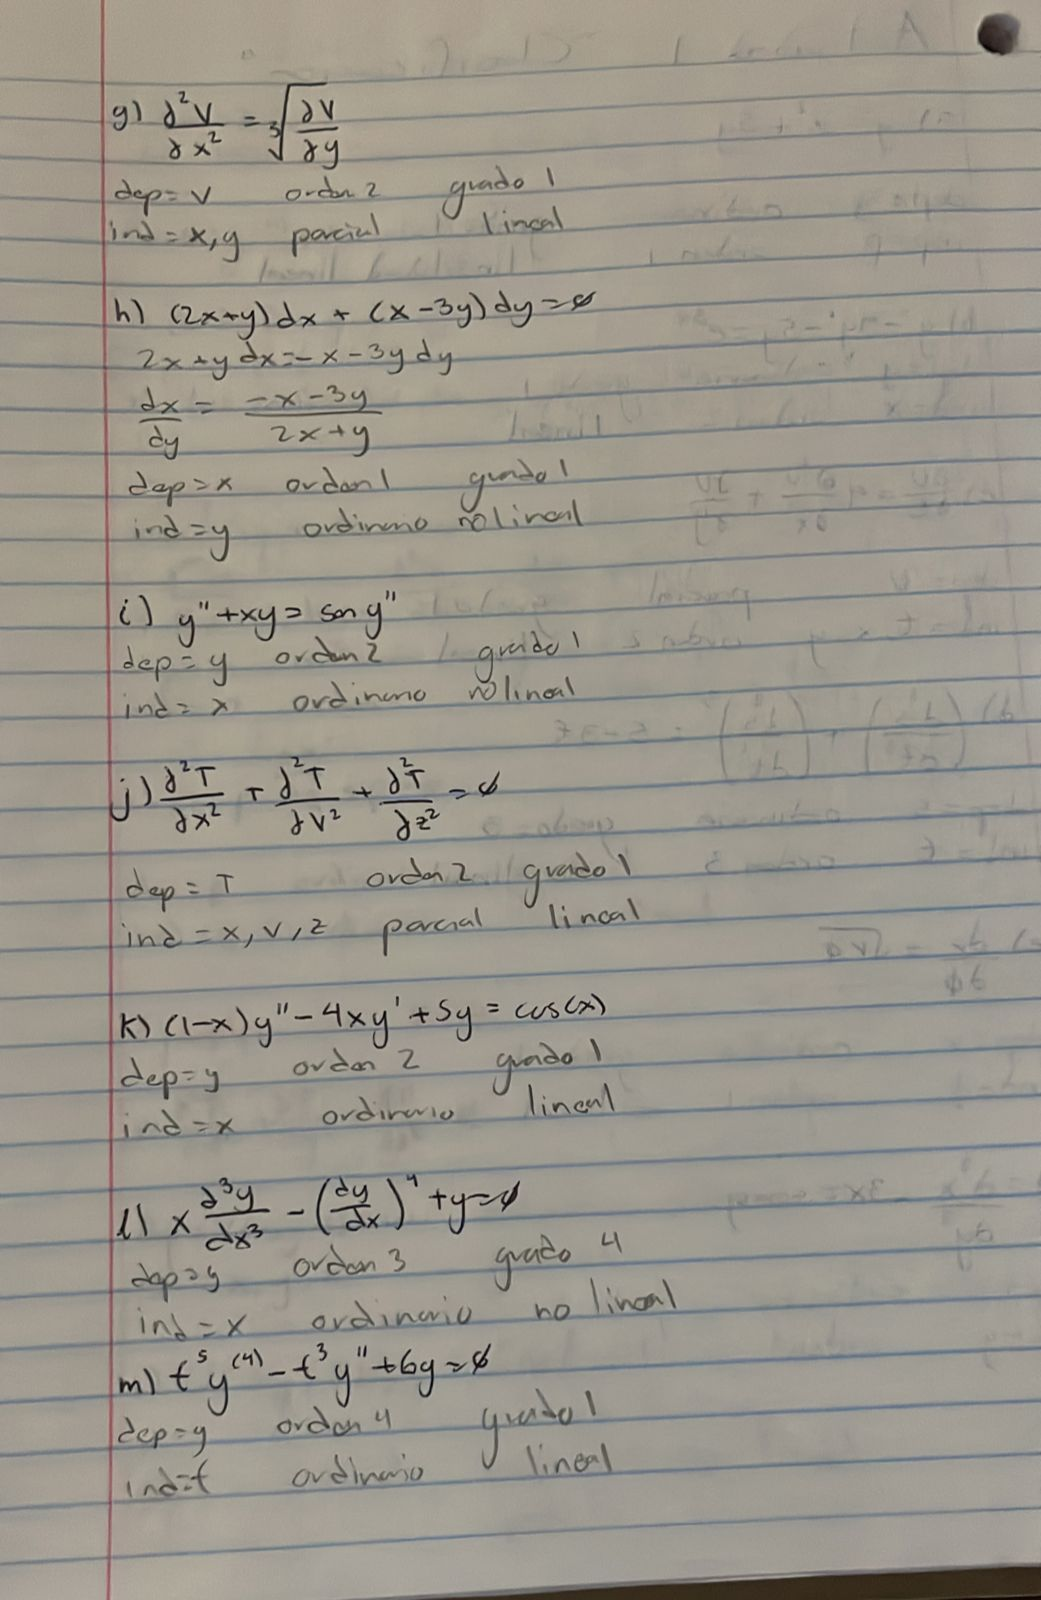 g) ∂²V/∂x² = ∛(∂V/∂y)
dep= V orden 2 grado 1
ind = x, y parcial lineal
h) (2x+y)dx + (x-3y)dy=0
2x+y dx=-x-3y dy
dx/dy = -x-3y/2x+y
dep=x orden 1 grado 1
ind=y ordinario no lineal
i) y"+xy= sen y"
dep=y orden 2 grado 1
ind= x ordinario no lineal
j) ∂²T/∂x² + ∂²T/∂V² + ∂²T/∂z² = 0
dep = T orden 2 grado 1
ind = x, v, z parcial lineal
k) (1-x)y" - 4xy' + 5y = cos(x)
dep=y orden 2 grado 1
ind=x ordinario lineal
l) x d³y/dx³ - (dy/dx)⁴ + y=0
dep=y orden 3 grado 4
ind=x ordinario no lineal
m) t⁵y⁽⁴⁾ - t³y" + 6y=0
dep=y orden 4 grado 1
ind=t ordinario lineal